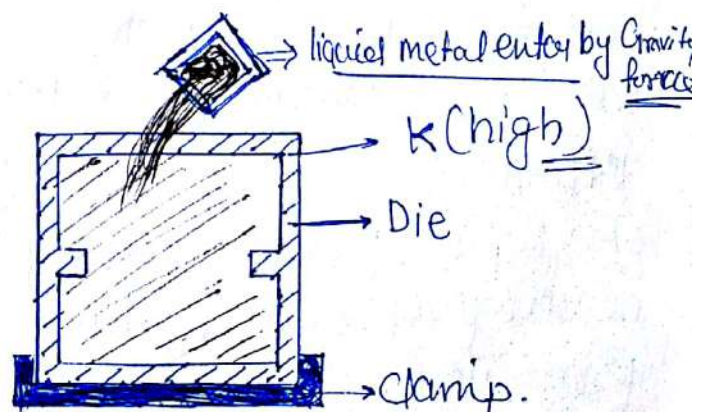 liquid metal enter by Gravity
force
K (high)
Die
clamp.